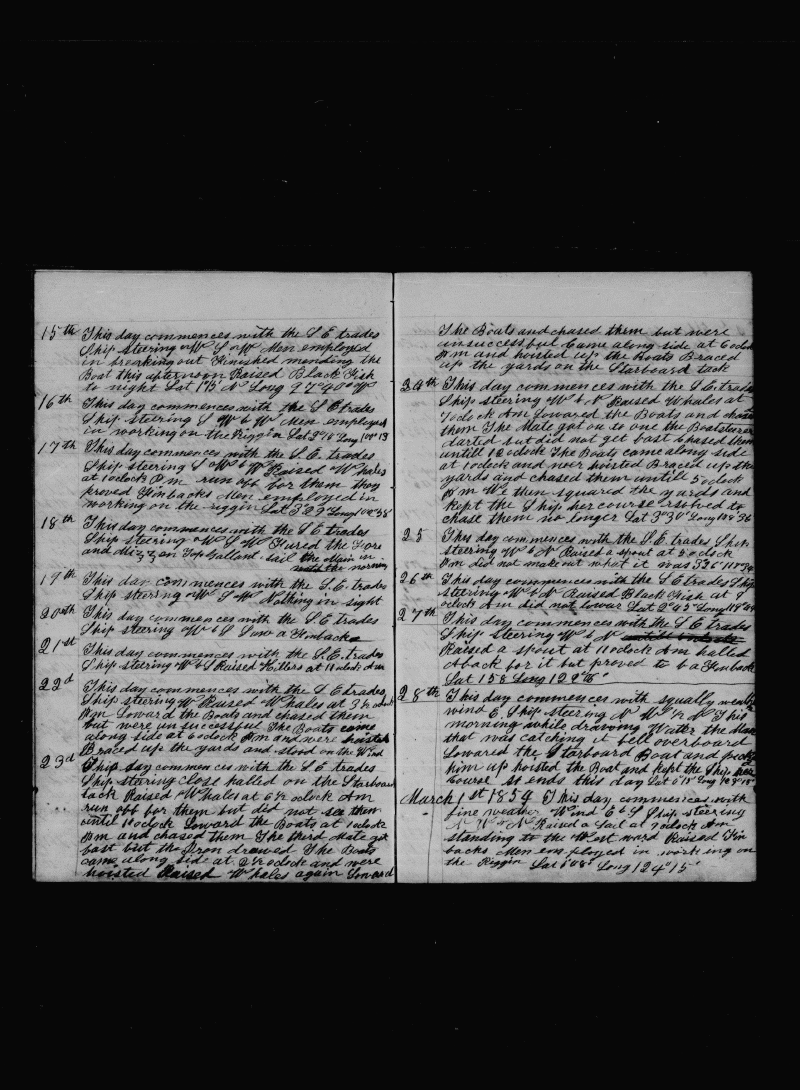 15th This day commences with the S E trades
Ship steering W S W Men employed
in breaking out Finished mending the
Boat this afternoon Raised Black Fish
to night Lat 1°15' N Long 97°40" W
16th This day commences with the S E trades
Ship steering S W b W Men employed
in working on the Riggin Lat 2°10" Long 100°13
17th This day commences with the S. E. trades
Ship steering S W b W Raised Whales
at 1 oclock P.m run off for them they
proved Finbacks Men employed in
working on the riggin Lat 3°23 Long 102°38'
18th This day commences with the S E trades
Ship steering W S W Fured the Fore
and Mizzen Top Gallant sail the Main in
19th This day commences with the S.E. trades
Ship steering W S W Nothing in sight
20th This day commences with the S E trades
Ship steering W b S Saw a Finback
21st This day commences with the S. E. trades
Ship steering W b S Raised Killers at 11 oclock Am
22d This day commences with the S E trades
Ship steering W Raised Whales at 3½ oclock
Pm Loward the Boats and chased them
but were unsuccessful The Boats came
along side at 6 oclock Pm and were hoisted
Braced up the yards and stood on the Wind
23d This day commences with the S E trades
Ship steering Close halled on the Starboard
tack Raised Whales at 6½ oclock Am
run off for them but did not see them
until 11 oclock Loward the Boats at 1 oclock
Pm and chased them The third Mate got
fast but the Iron drawed The Boats
came along side at 3½ oclock and were
hoisted Raised Whales again Loward
The Boats and chased them but were
unsuccessful Came along side at 6 oclock
Pm and hoisted up the Boats Braced
up the yards on the Starboard tack
24th This day commences with the S E trades
Ship steering W b N Raised Whales at
7 oclock Am Lowared the Boats and chased
them The Mate got on to one the Boatsteerer
darted but did not get fast Chased them
untill 12 oclock The Boats came along side
at 1 oclock and were hoisted Braced up the
yards and chased them until 5 oclock
P m We then squared the yards and
kept the Ship her course resolved to
chase them no longer Lat 3°30' Long 108°36
25 This day commences with the S E. trades Ship
steering W b N Raised a spout at 5 oclock
Pm did not make out what it was
26th This day commences with the S E trades Ship
steering W b N Raised Black Fish at 5
oclock Am did not lowar Lat 2°45'
27th This day commences with the S E trades
Ship steering W b N
Raised a spout at 11 oclock Am halled
aback for it but proved to b a Finback
Lat 1 58 Long 120°
28th This day commences with squally weather
wind E. Ship steering N W ½ N This
morning while drawing Water the Man
that was catching it fell overboard
Lowared the Starboard Boat and picked
him up hoisted the Boat and kept the Ship her
course So ends this day
March 1st 1859 This day commences with
fine weather Wind E b S Ship steering
Raised a Sail at 7 oclock Am
standing to the Westward Raised Fin
backs Men employed in working on
the Riggin Long 124°15'